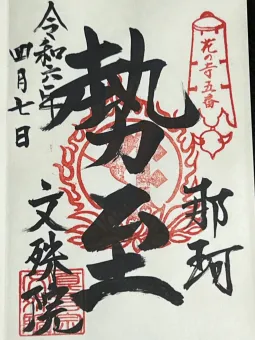 花の寺五番
那珂
勢至
文殊院
令和六年
四月七日